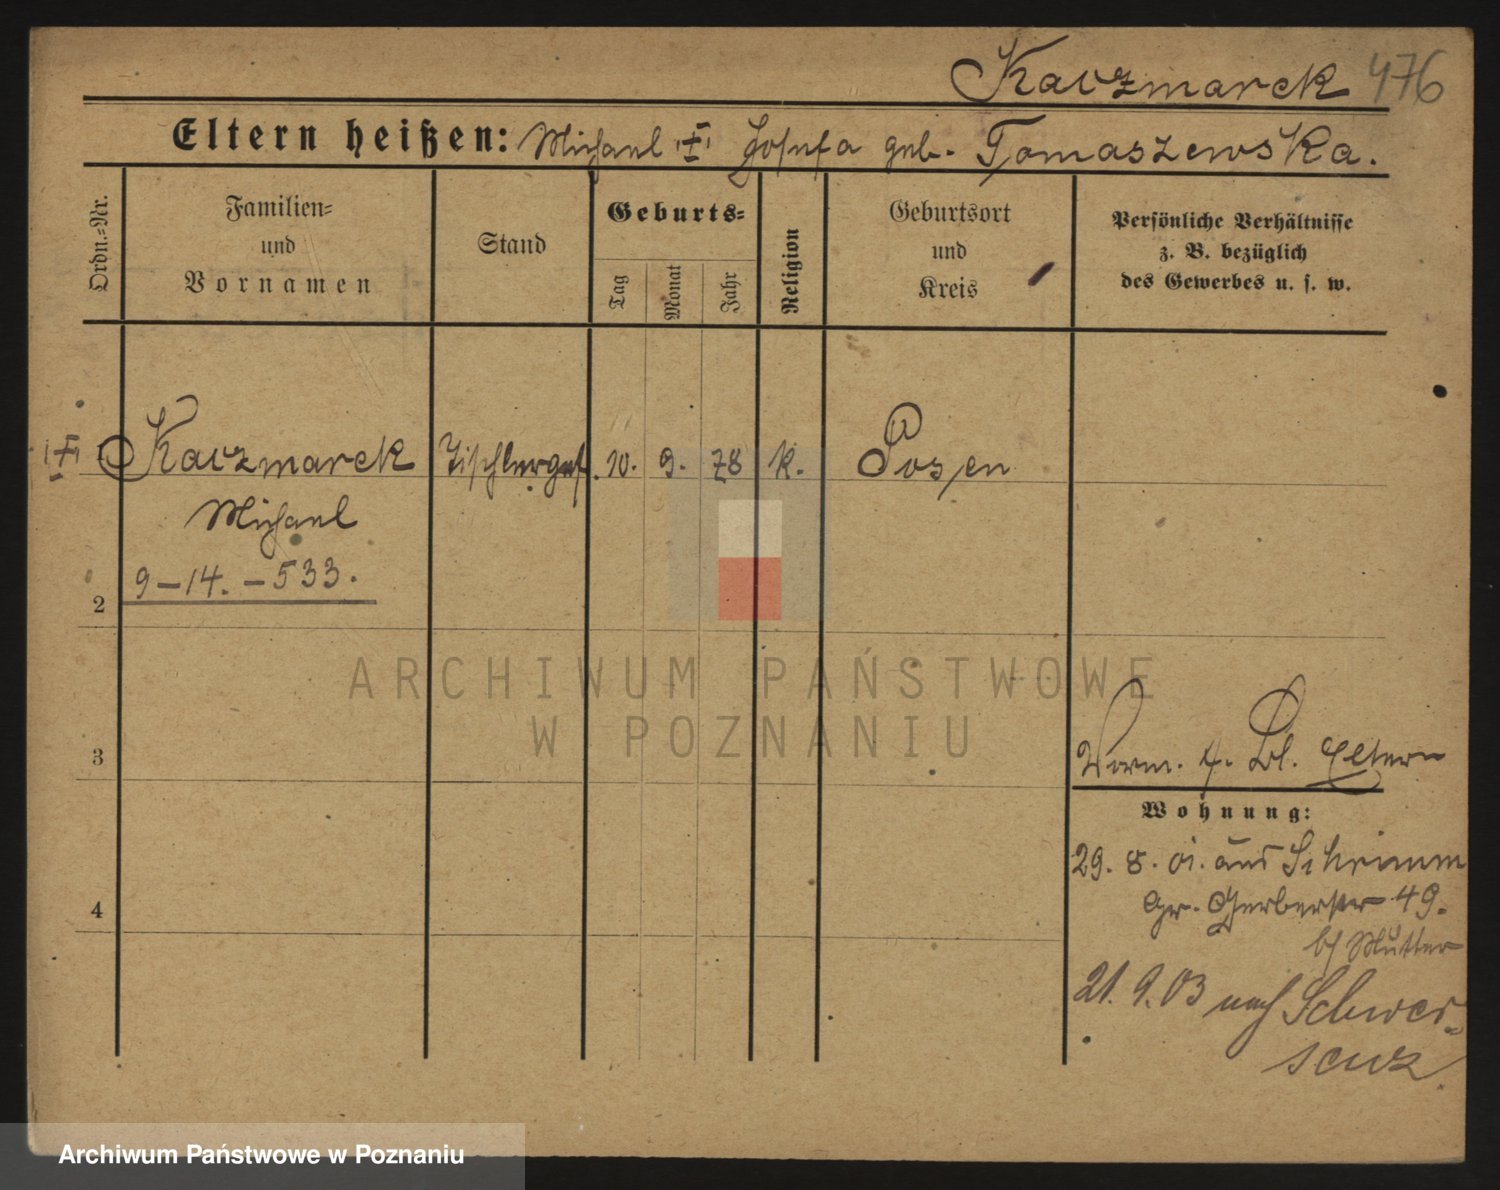 Kaczmarek 476
Eltern heißen: Michael Josefa geb. Tomaszewska.
Ordn.-Nr.
Familien-
und
Vornamen
Stand
Geburts-
Tag
Monat
Jahr
Religion
Geburtsort
und
Kreis
Persönliche Verhältnisse
z. B. bezüglich
des Gewerbes u. s. w.
1 Kaczmarek Tischlerges. 10. 9. 78 k. Posen
Michael
9-14.-533.
2
ARCHIWUM PAŃSTWOWE
W POZNANIU
3
Vorm. f. Bl. Eltern
Wohnung:
29. 8. 01. aus Schrimm
4
Gr. Gerberstr 49.
b/ Mutter
21. 9. 03 nach Schwer-
senz
Archiwum Państwowe w Poznaniu